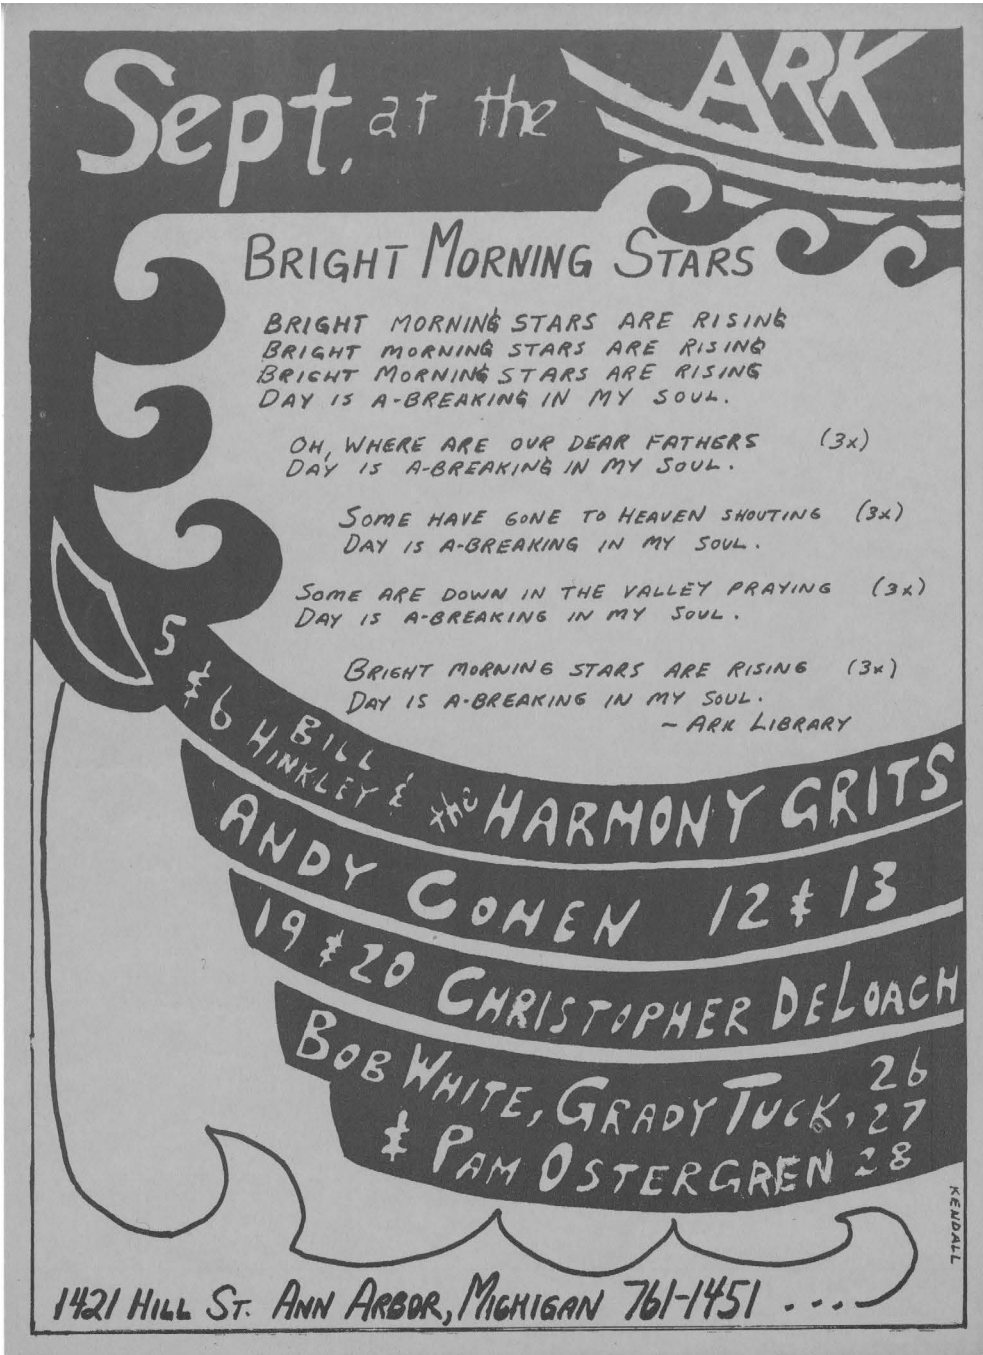 Sept. at the ARK
BRIGHT MORNING STARS
BRIGHT MORNING STARS ARE RISING
BRIGHT MORNING STARS ARE RISING
BRIGHT MORNING STARS ARE RISING
DAY IS A-BREAKING IN MY SOUL.
OH, WHERE ARE OUR DEAR FATHERS (3x)
DAY IS A-BREAKING IN MY SOUL.
SOME HAVE GONE TO HEAVEN SHOUTING (3x)
DAY IS A-BREAKING IN MY SOUL.
SOME ARE DOWN IN THE VALLEY PRAYING (3x)
DAY IS A-BREAKING IN MY SOUL.
BRIGHT MORNING STARS ARE RISING (3x)
DAY IS A-BREAKING IN MY SOUL.
- ARK LIBRARY
5 & 6 BILL HINKLEY & the HARMONY GRITS
ANDY COHEN 12 & 13
19 & 20 CHRISTOPHER DELOACH
BOB WHITE, GRADY TUCK, 26 27
& PAM OSTERGREN 28
KENDALL
1421 HILL ST. ANN ARBOR, MICHIGAN 761-1451 ....